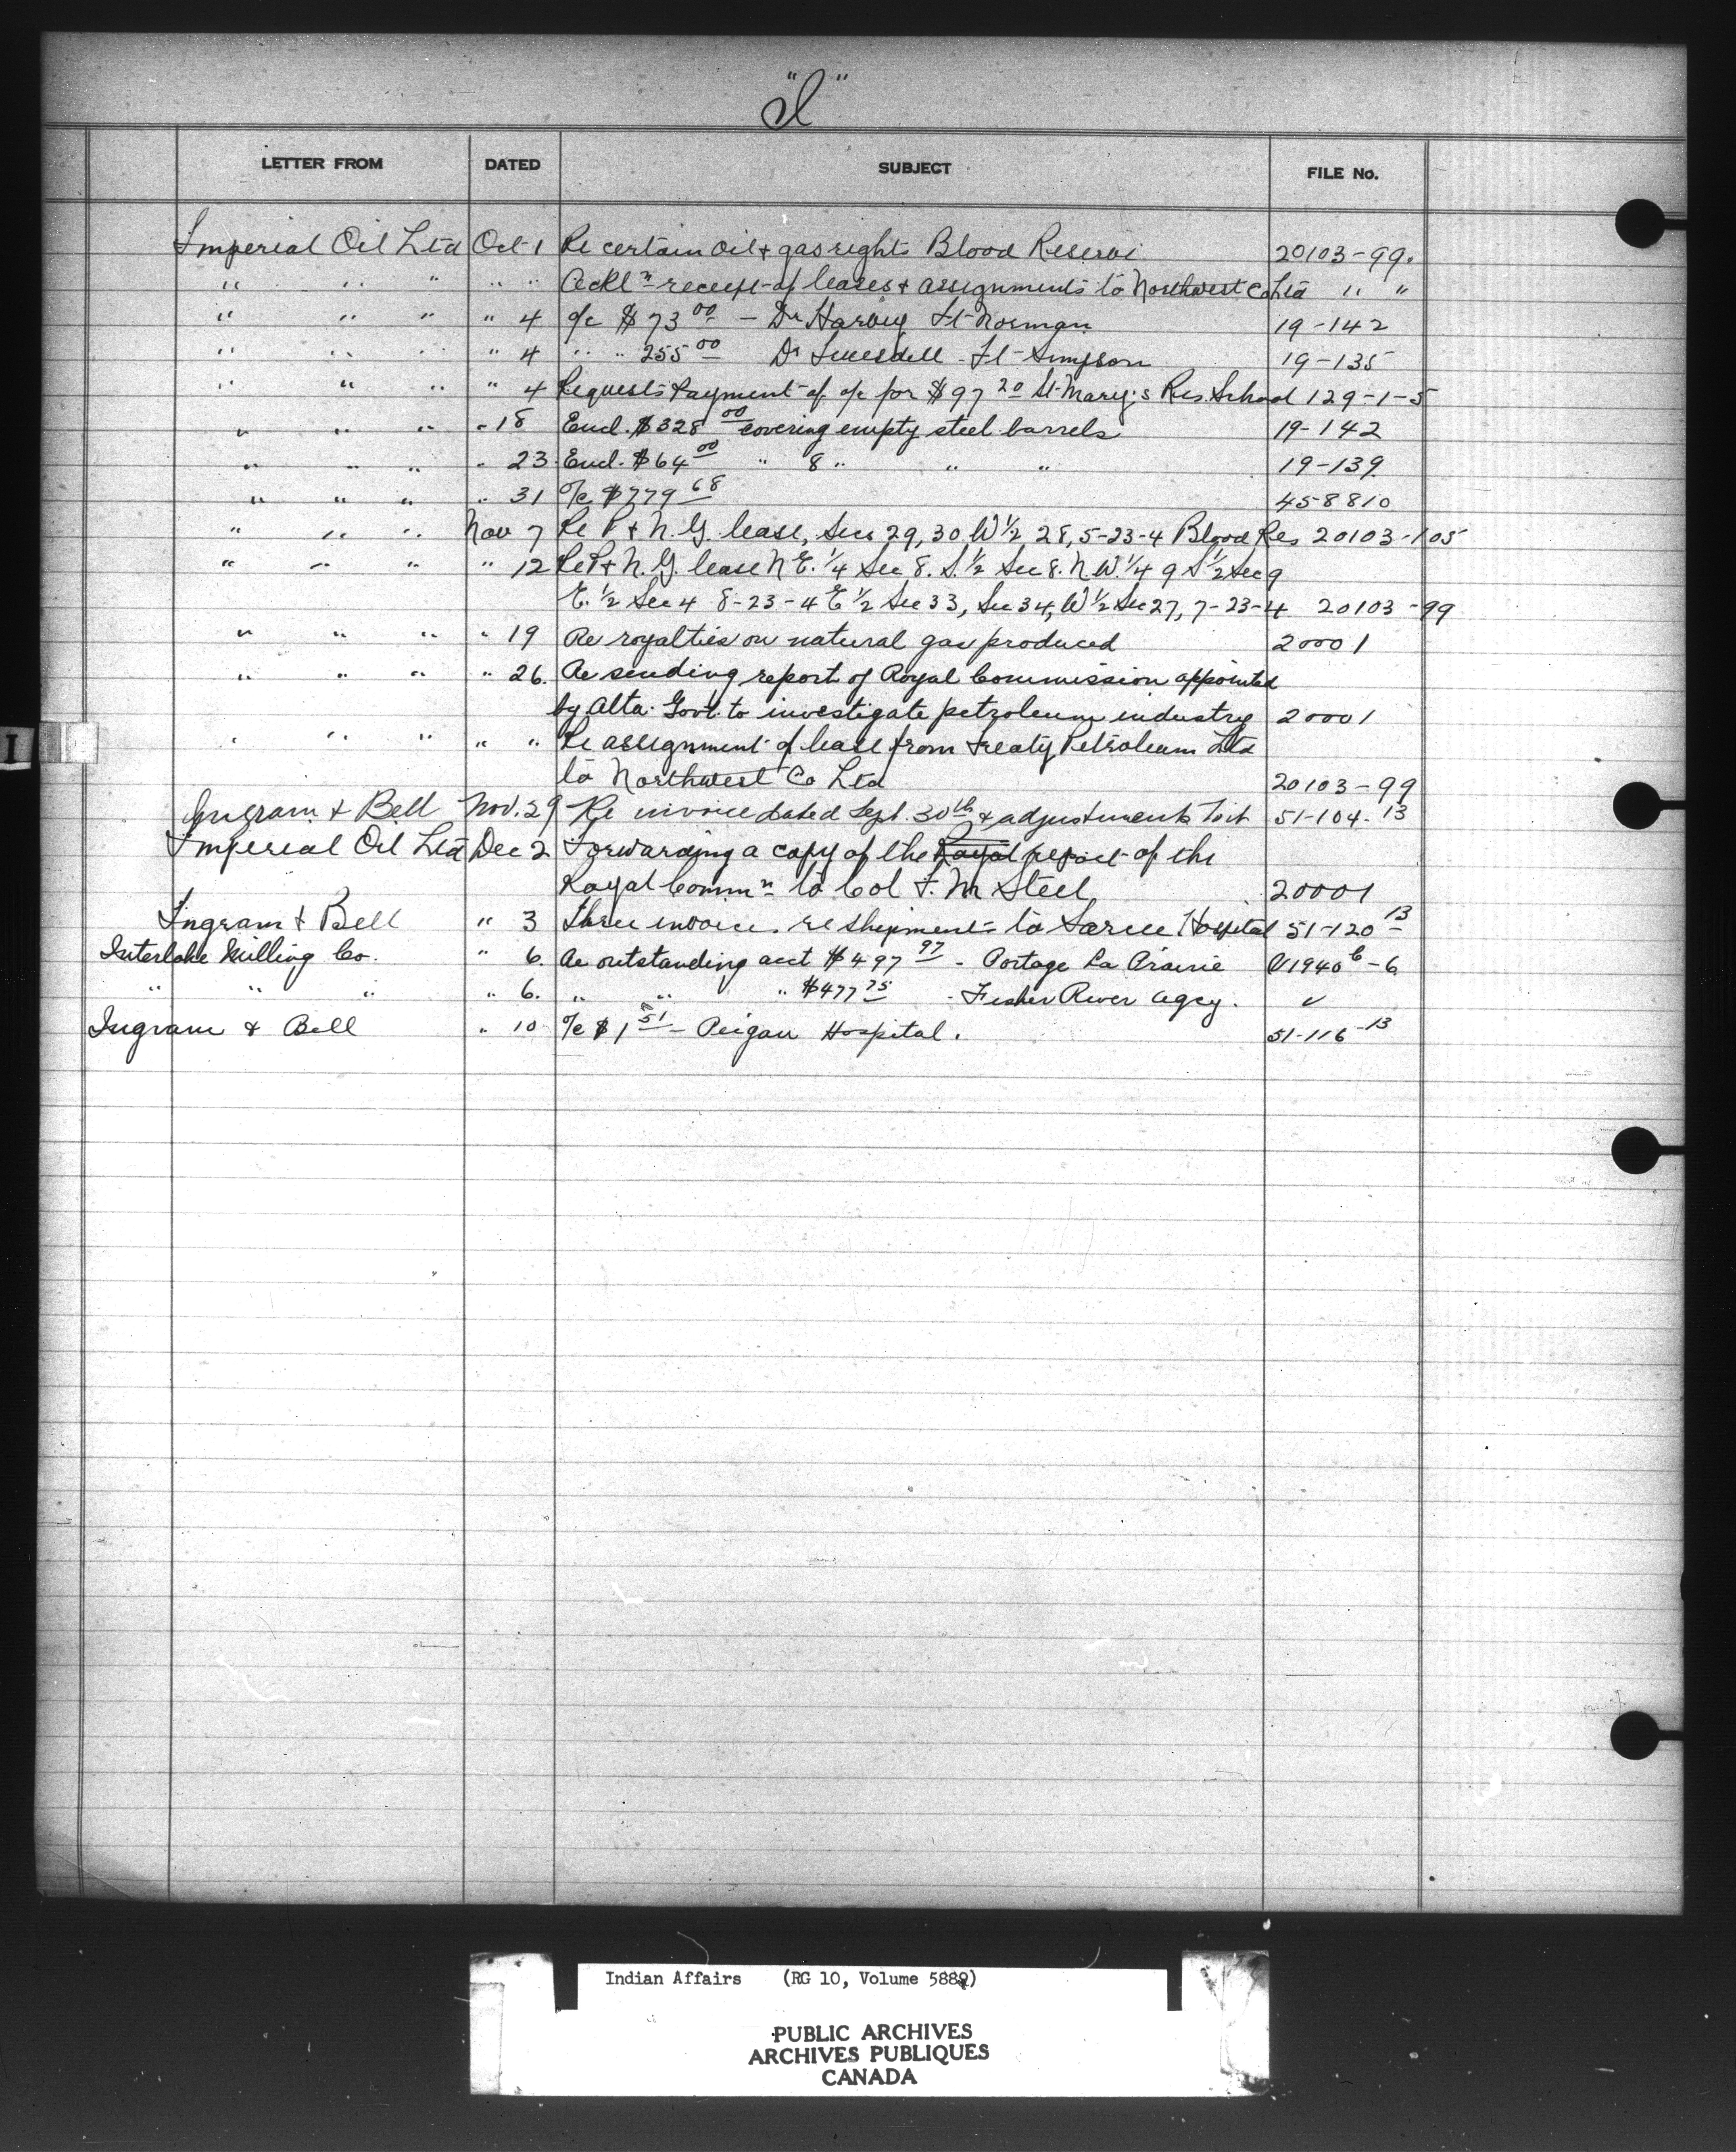 "I"
LETTER FROM DATED SUBJECT FILE No.
Imperial Oil Ltd Oct 1 Re certain oil & gas rights Blood Reserve 20103-99.
" " " " " Ackl n receipt of leases & assignments to Northwest Co Ltd " "
" " " " 4 a/c $73 00 - Dr Harvey Ft Norman 19-142
" " " " 4 " " 255 00 Dr Truesdell - Ft Simpson 19-135
" " " " 4 Requests Payment of a/c for $97 20 St Mary's Res. School 129-1-5
" " " " 18 Encl. $328 00 covering empty steel barrels 19-142
" " " " 23 Encl. $64 00 " 8 " " " 19-139
" " " " 31 a/c $779 68 458810
" " " Nov 7 Re P & N. G. lease, Secs 29, 30, W 1/2, 28, 5-23-4 Blood Res 20103-105
" " " " 12 Re P & N. G. lease N E. 1/4 Sec 8. S. 1/2 Sec 8. N.W. 1/4 9 S 1/2 Sec 9
E. 1/2 Sec 4 8-23-4 E 1/2 Sec 33, Sec 34, W 1/2 Sec 27, 7-23-4 20103-99
" " " " 19 Re royalties on natural gas produced 20001
" " " " 26. Re sending report of Royal Commission appointed
by Alta. Govt. to investigate petroleum industry 20001
" " " " " Re assignment of lease from Treaty Petroleum Ltd
to Northwest Co Ltd 20103-99
Ingram & Bell Nov. 29 Re invoice dated Sept. 30th & adjustments to it 51-104-13
Imperial Oil Ltd Dec 2 Forwarding a copy of the Royal report of the
Royal Comm n to Col F. M Steel 20001
Ingram & Bell " 3 Three invoices re shipments to Sarcee Hospital 51-120-13
Interlake Milling Co. " 6. Re outstanding acct $497 97 - Portage La Prairie V1940 6-6
" " " " 6. " " " $477 75 - Fisher River Agcy. ✓
Ingram & Bell " 10 a/c $1 51 - Peigan Hospital. 51-116-13
I
Indian Affairs (RG 10, Volume 5889)
PUBLIC ARCHIVES
ARCHIVES PUBLIQUES
CANADA